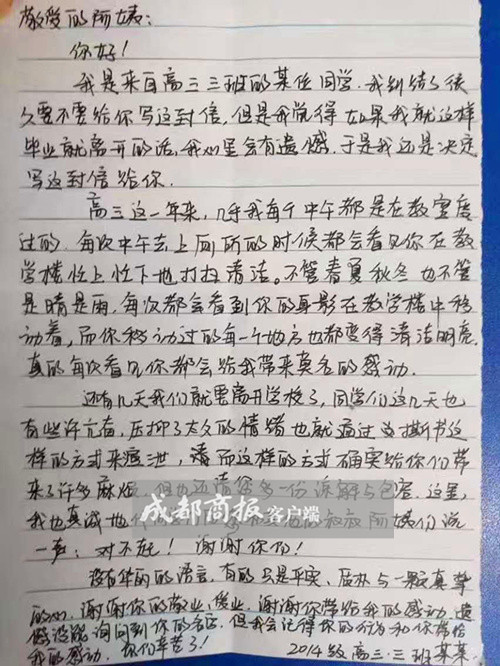 敬爱的阿姨：
你好！
我是来自高三三班的某位同学，我纠结了很
久要不要给你写这封信，但是我觉得如果我就这样
毕业就离开的话，我心里会有遗憾，于是我还是决定
写这封信给你．
高三这一年来，几乎我每个中午都是在教室度
过的．每次中午去上厕所的时候都会看见你在教
学楼忙上忙下地打扫清洁。不管春夏秋冬也不管
是晴是雨，每次都会看到你的身影在教学楼中移
动着，而你移动过的每一个地方也都变得清洁明亮．
真的每次看见你都会给我带来莫名的感动．
还有几天我们就要离开学校了，同学们这几天也
有些许亢奋，压抑了太久的情绪也就通过
撕书这
样的方式来宣泄，而这样的方式确实给你们带
来了许多麻烦，但也还请您多一份谅解与包容．这里，
我也真诚地
叔叔阿姨们说
一声：对不起！谢谢你们！
没有华丽的语言，有的只是平实、质朴与一颗真挚
的心，谢谢你的敬业、
谢谢你带给我的感动．遗
憾没能询问到你的名字，但我会记得你的行为和你带给
我的感动．你们辛苦了！
2014级高三·三班某某．
成都商报客户端